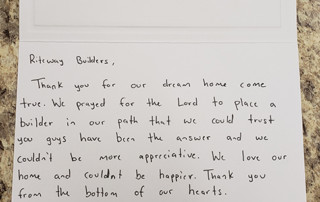 Riteway Builders,
Thank you for our dream home come
true. We prayed for the Lord to place a
builder in our path that we could trust
you guys have been the answer and we
couldn't be more appreciative. We love our
home and couldnt be happier. Thank you
from the bottom of our hearts.